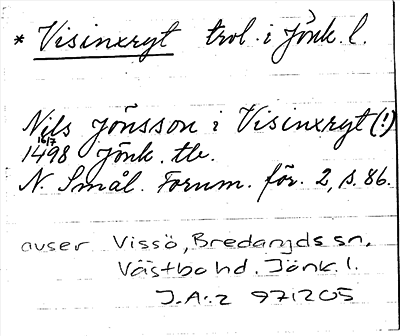 * Visinxryt trol. i Jönk. l.
Nils Jönsson i Visinxryt (!)
16/7
1498 Jönk. tb.
N. Smål. Fornm. för. 2, s. 86.
avser Vissö, Bredaryds sn,
Västbo hd. Jönk. l.
J.A:2 971205